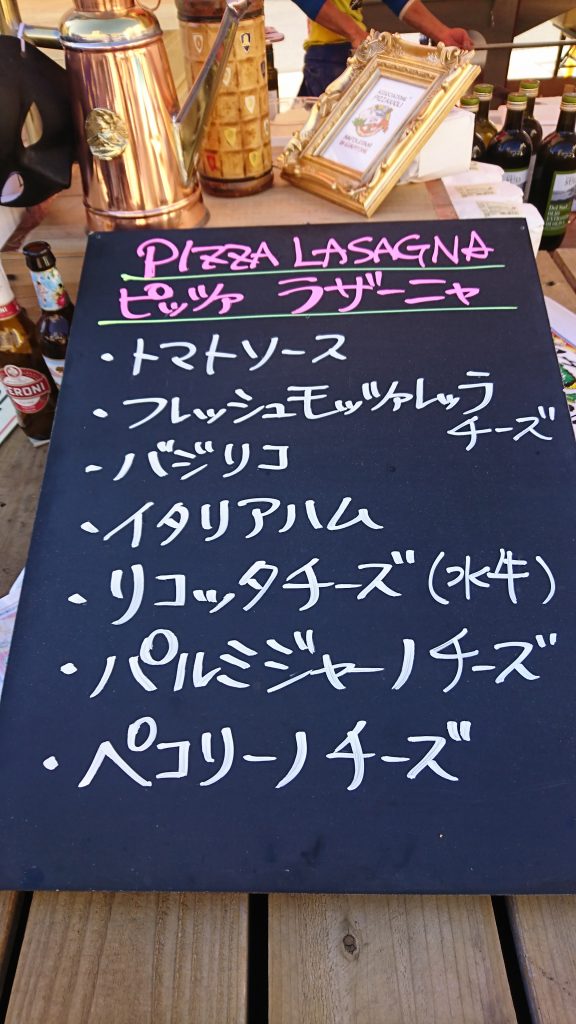 PIZZA LASAGNA
ピッツァ ラザーニャ
・トマトソース
・フレッシュモッツァレッラ
チーズ
・バジリコ
・イタリアハム
・リコッタチーズ(水牛)
・パルミジャーノチーズ
・ペコリーノチーズ
PERONI